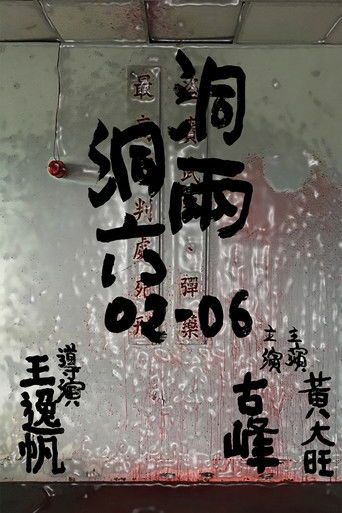 洞兩
洞六
02-06
賣、彈藥
最判處死刑
主演
黃大旺
古峰
導演
王逸帆